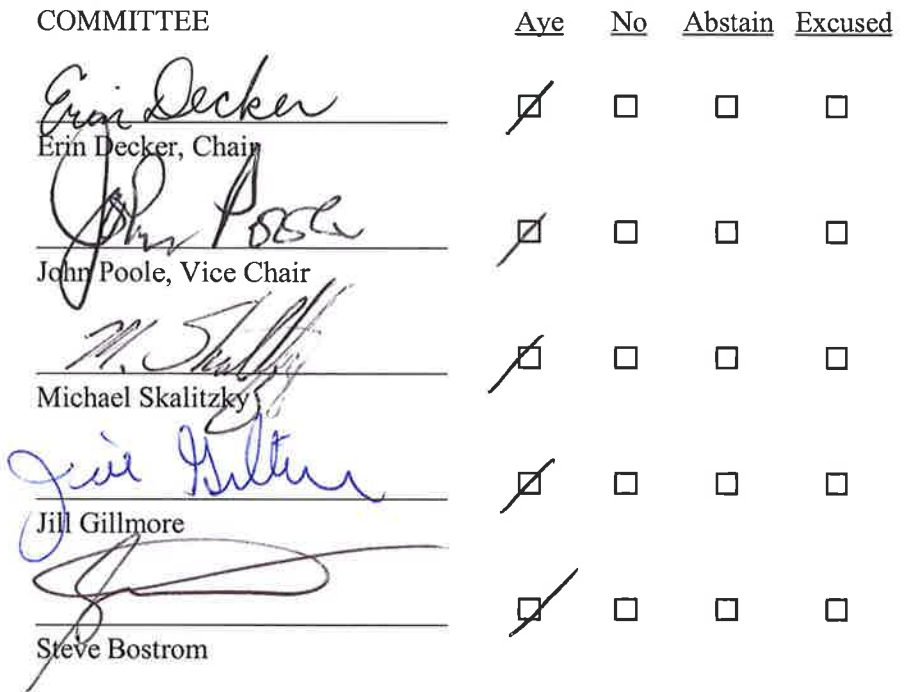 COMMITTEE Aye No Abstain Excused
Erin Decker
Erin Decker, Chair
John Poole
John Poole, Vice Chair
M. Skalitzky
Michael Skalitzky
Jill
Jill Gillmore
Steve Bostrom